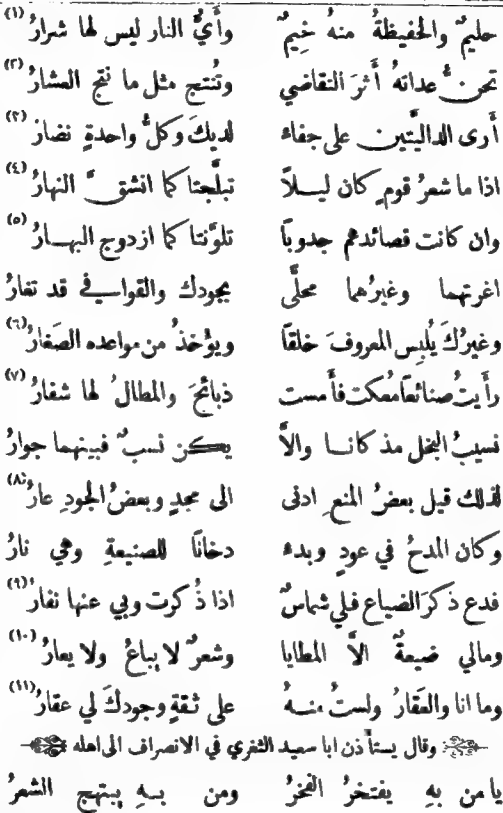 حليمٌ والحفيظةُ منهُ خِيمٌ وأَيُّ النار ليس لها شرارُ (١)
تحنُّ عداتهُ أَثرَ التقاضي وتُنتج مثل ما نتج العشارُ (٢)
أرى الداليّتين على جفاء لديكَ وكلُّ واحدةٍ نضارُ (٣)
اذا ما شعرُ قومٍ كان ليلاً تبلّجتا كما انشقَّ النهارُ (٤)
وان كانت قصائدهم جدوباً تلوّنتا كما ازدوج البهارُ (٥)
اغرتهما وغيرُهما محلَّى بجودك والقوافي قد تغارُ
وغيرُكَ يُلبس المعروفَ خلقاً ويؤْخذُ من مواعده الصَغارُ (٦)
رأَيتُ صنائعاً معكت فأَمست ذبائحَ والمطالُ لها شفارُ (٧)
نسيبُ البخل مذ كانا والاَّ يكن نسبٌ فبينهما جوارُ
لذلك قيل بعضُ المنع ادنى الى مجدٍ وبعضُ الجودِ عارُ (٨)
وكان المدحُ في عودٍ وبدء دخاناً للصنيعةِ وهي نارُ
فدع ذكرَ الضياع فلي شماسٌ اذا ذُكرت وبي عنها نفارُ (٩)
ومالي ضيعةٌ الاَّ المطايا وشعرٌ لا يباعُ ولا يعارُ (١٠)
وما انا والعَقارُ ولستُ منهُ على ثقةٍ وجودكَ لي عقارُ (١١)
وقال يستأذن ابا سعيد الثغري في الانصراف الى اهله
يا من بهِ يفتخرُ الفخرُ ومن بهِ يبتهج الشعرُ